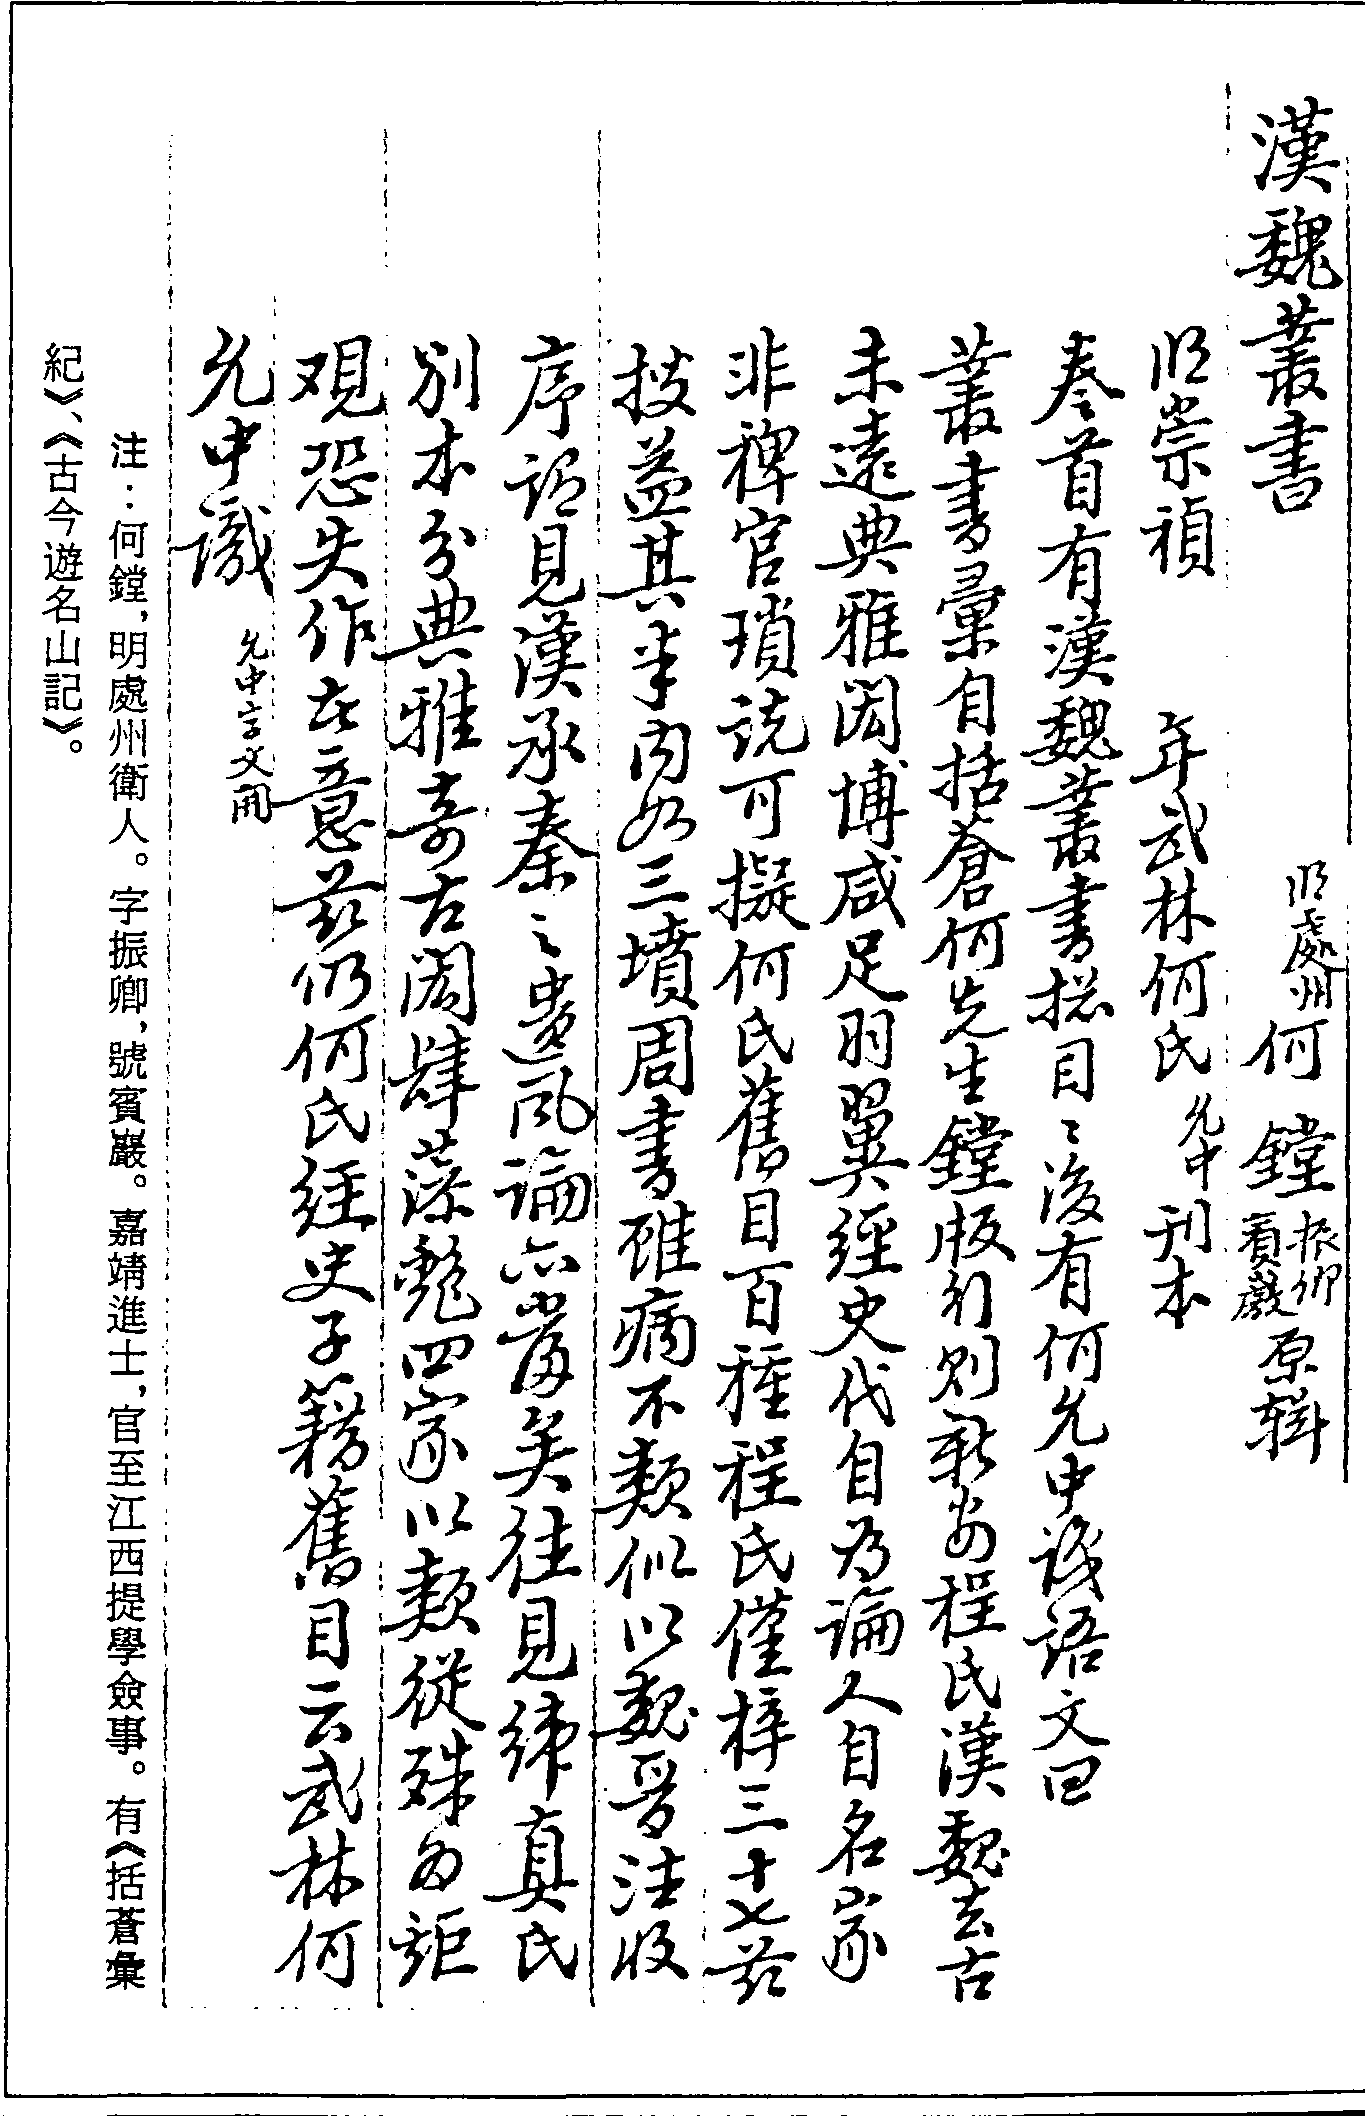 漢魏叢書　明處州何　鏜振卿賓巖原輯
明崇禎　年武林何氏允中刊本
卷首有漢魏叢書總目〻後有何允中識語文曰
叢書彙自括蒼何先生鏜版行則新安程氏漢魏去古
未遠典雅閎博咸足羽翼經史代自為論人自名家
非稗官瑣說可擬何氏舊目百種程氏僅梓三十七茲
搜益其半內如三墳周書雖病不類似以魏晉注收
序謂見漢承秦〻之遺風論亦當矣往見緯真氏
別本分典雅奇古閎肆藻艷四家以類從殊為詎
观恐失作者意茲仍何氏經史子籍舊目云武林何
允中識　允中字文開
注：何鏜，明處州衛人。字振卿，號賓巖。嘉靖進士，官至江西提學僉事。有《括蒼彙
紀》、《古今遊名山記》。